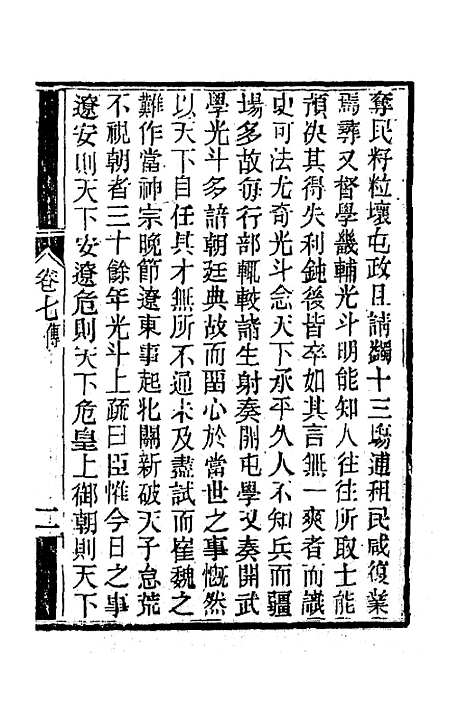 奪民籽粒壞屯政且請蠲十三塲逋租民咸復業
焉尋又督學畿輔光斗明能知人往往所取士能
預決其得失利鈍後皆卒如其言無一爽者而識
史可法尤奇光斗念天下承平久人不知兵而疆
場多故每行部輒較諸生射奏開屯學又奏開武
學光斗多諳朝廷典故而畱心於當世之事慨然
以天下自任其才無所不通未及盡試而崔魏之
難作當神宗晚節遼東事起北關新破天子怠荒
不視朝者三十餘年光斗上疏曰臣惟今日之事
遼安則天下安遼危則天下危皇上御朝則天下
卷七 傳
二